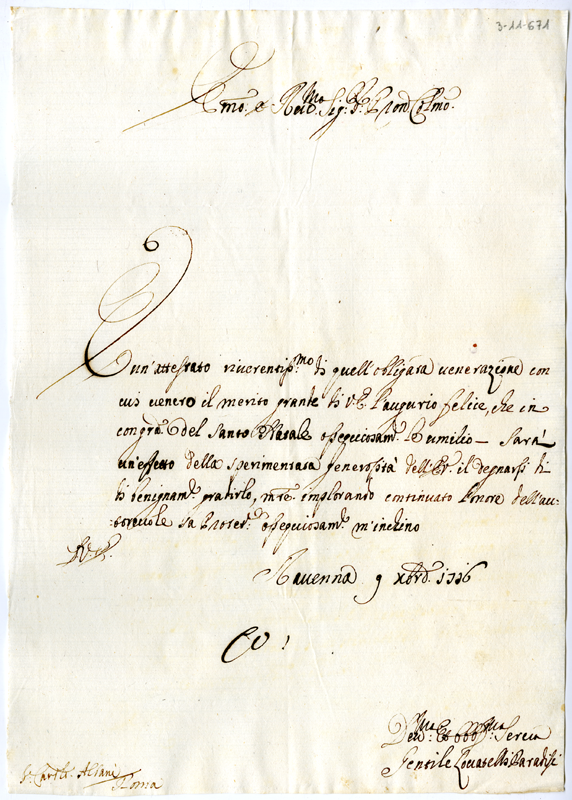 3-11-671
Emo: e Revmo: Sig:r Pron Colmo.
È un'attestato riverentiss.mo di quell'obligata venerazione con
cui venero il merito grande di V.E. l'augurio felice, che in
congra del Santo Natale ossequiosam.te l'umilio— Sarà
un'effetto della sperimentata generosità dell'E.V. il degnarsi di
di benignam.te gradirlo, m.tre implorando continuato l'onore dell'au-
:torevole sa Protez.e ossequiosam.te m'inchino
D.V.E.
Ravenna 9 Xbre 1716
Dev.ma Et Obb.ma Serva
Gentile Lovatelli Paradisi
S.r Card.le Albani
Roma